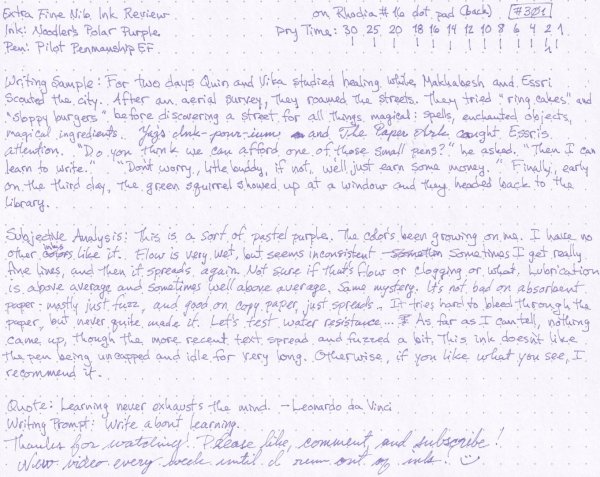 Extra Fine Nib Ink Review on Rhodia #16 dot pad (back) #301
Ink: Noodler's Polar Purple Dry Time: 30 25 20 18 16 14 12 10 8 6 4 2 1
Pen: Pilot Penmanship EF
Writing Sample: For two days Quin and Vika studied healing while Makhabesh and Essri
scouted the city. After an aerial survey, they roamed the streets. They tried "ring cakes" and
"sloppy burgers" before discovering a street for all things magical: spells, enchanted objects,
magical ingredients. and The Paper caught Essri's
attention. "Do you think we can afford one of those small pens?" he asked. "Then I can
learn to write." "Don't worry, little buddy, if not, we'll just earn some money." Finally, early
on the third day, the green squirrel showed up at a window and they headed back to the
library.
Subjective Analysis: This is a sort of pastel purple. The color's been growing on me. I have no
other inks like it. Flow is very wet, but seems inconsistent. Sometimes I get really
fine lines, and then it spreads again. Not sure if that's flow or clogging or what. Lubrication
is above average and sometimes well above average. Same mystery. It's not bad on absorbent
paper: mostly just fuzz, and good on copy paper, just spreads. It tries hard to bleed through the
paper, but never quite made it. Let's test water resistance... As far as I can tell, nothing
came up, though the more recent text spread and fuzzed a bit. This ink doesn't like
the pen being uncapped and idle for very long. Otherwise, if you like what you see, I
recommend it.
Quote: Learning never exhausts the mind. -Leonardo da Vinci
Writing Prompt: Write about learning.
Thanks for watching! Please like, comment, and subscribe!
New video every week until I run out of inks.